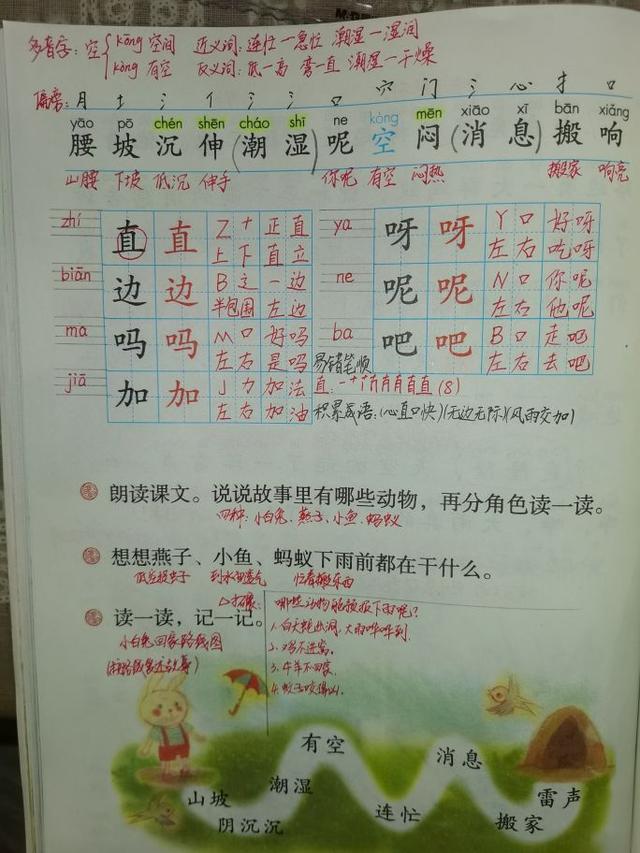 多音字：空 kōng 空间 近义词：连忙—急忙 潮湿—湿润
kòng 有空 反义词：低—高 弯—直 潮湿—干燥
偏旁：月 土 氵 亻 氵 氵 口 穴 门 氵 心 扌 口
yāo pō chén shēn cháo shī ne kòng mēn xiāo xī bān xiǎng
腰 坡 沉 伸（潮 湿）呢 空 闷（消 息）搬 响
山腰 下坡 低沉 伸手 你呢 有空 闷热 搬家 响亮
zhí 直 直 Z 十 正直
上下 直立
biān 边 边 B 辶 一边
半包围 左边
ma 吗 吗 M 口 好吗
左右 是吗
jiā 加 加 J 力 加法
左右 加油
ya 呀 呀 Y 口 好呀
左右 吃呀
ne 呢 呢 N 口 你呢
左右 他呢
ba 吧 吧 B 口 走吧
左右 去吧
易错笔顺
直： (8)
积累成语：(心直口快)(无边无际)(风雨交加)
朗读课文。说说故事里有哪些动物，再分角色读一读。
四种：小白兔、燕子、小鱼、蚂蚁
想想燕子、小鱼、蚂蚁下雨前都在干什么。
低空捉虫子 到水面透气 忙着搬东西
读一读，记一记。
小白兔回家路线图
△拓展：
哪些动物能预报下雨呢？
1.白天蛇出洞，大雨哗哗到
2.鸡不进窝
3.牛羊不回家
4.蚊子咬得凶
有空
消息
潮湿
山坡
雷声
连忙
阴沉沉
搬家